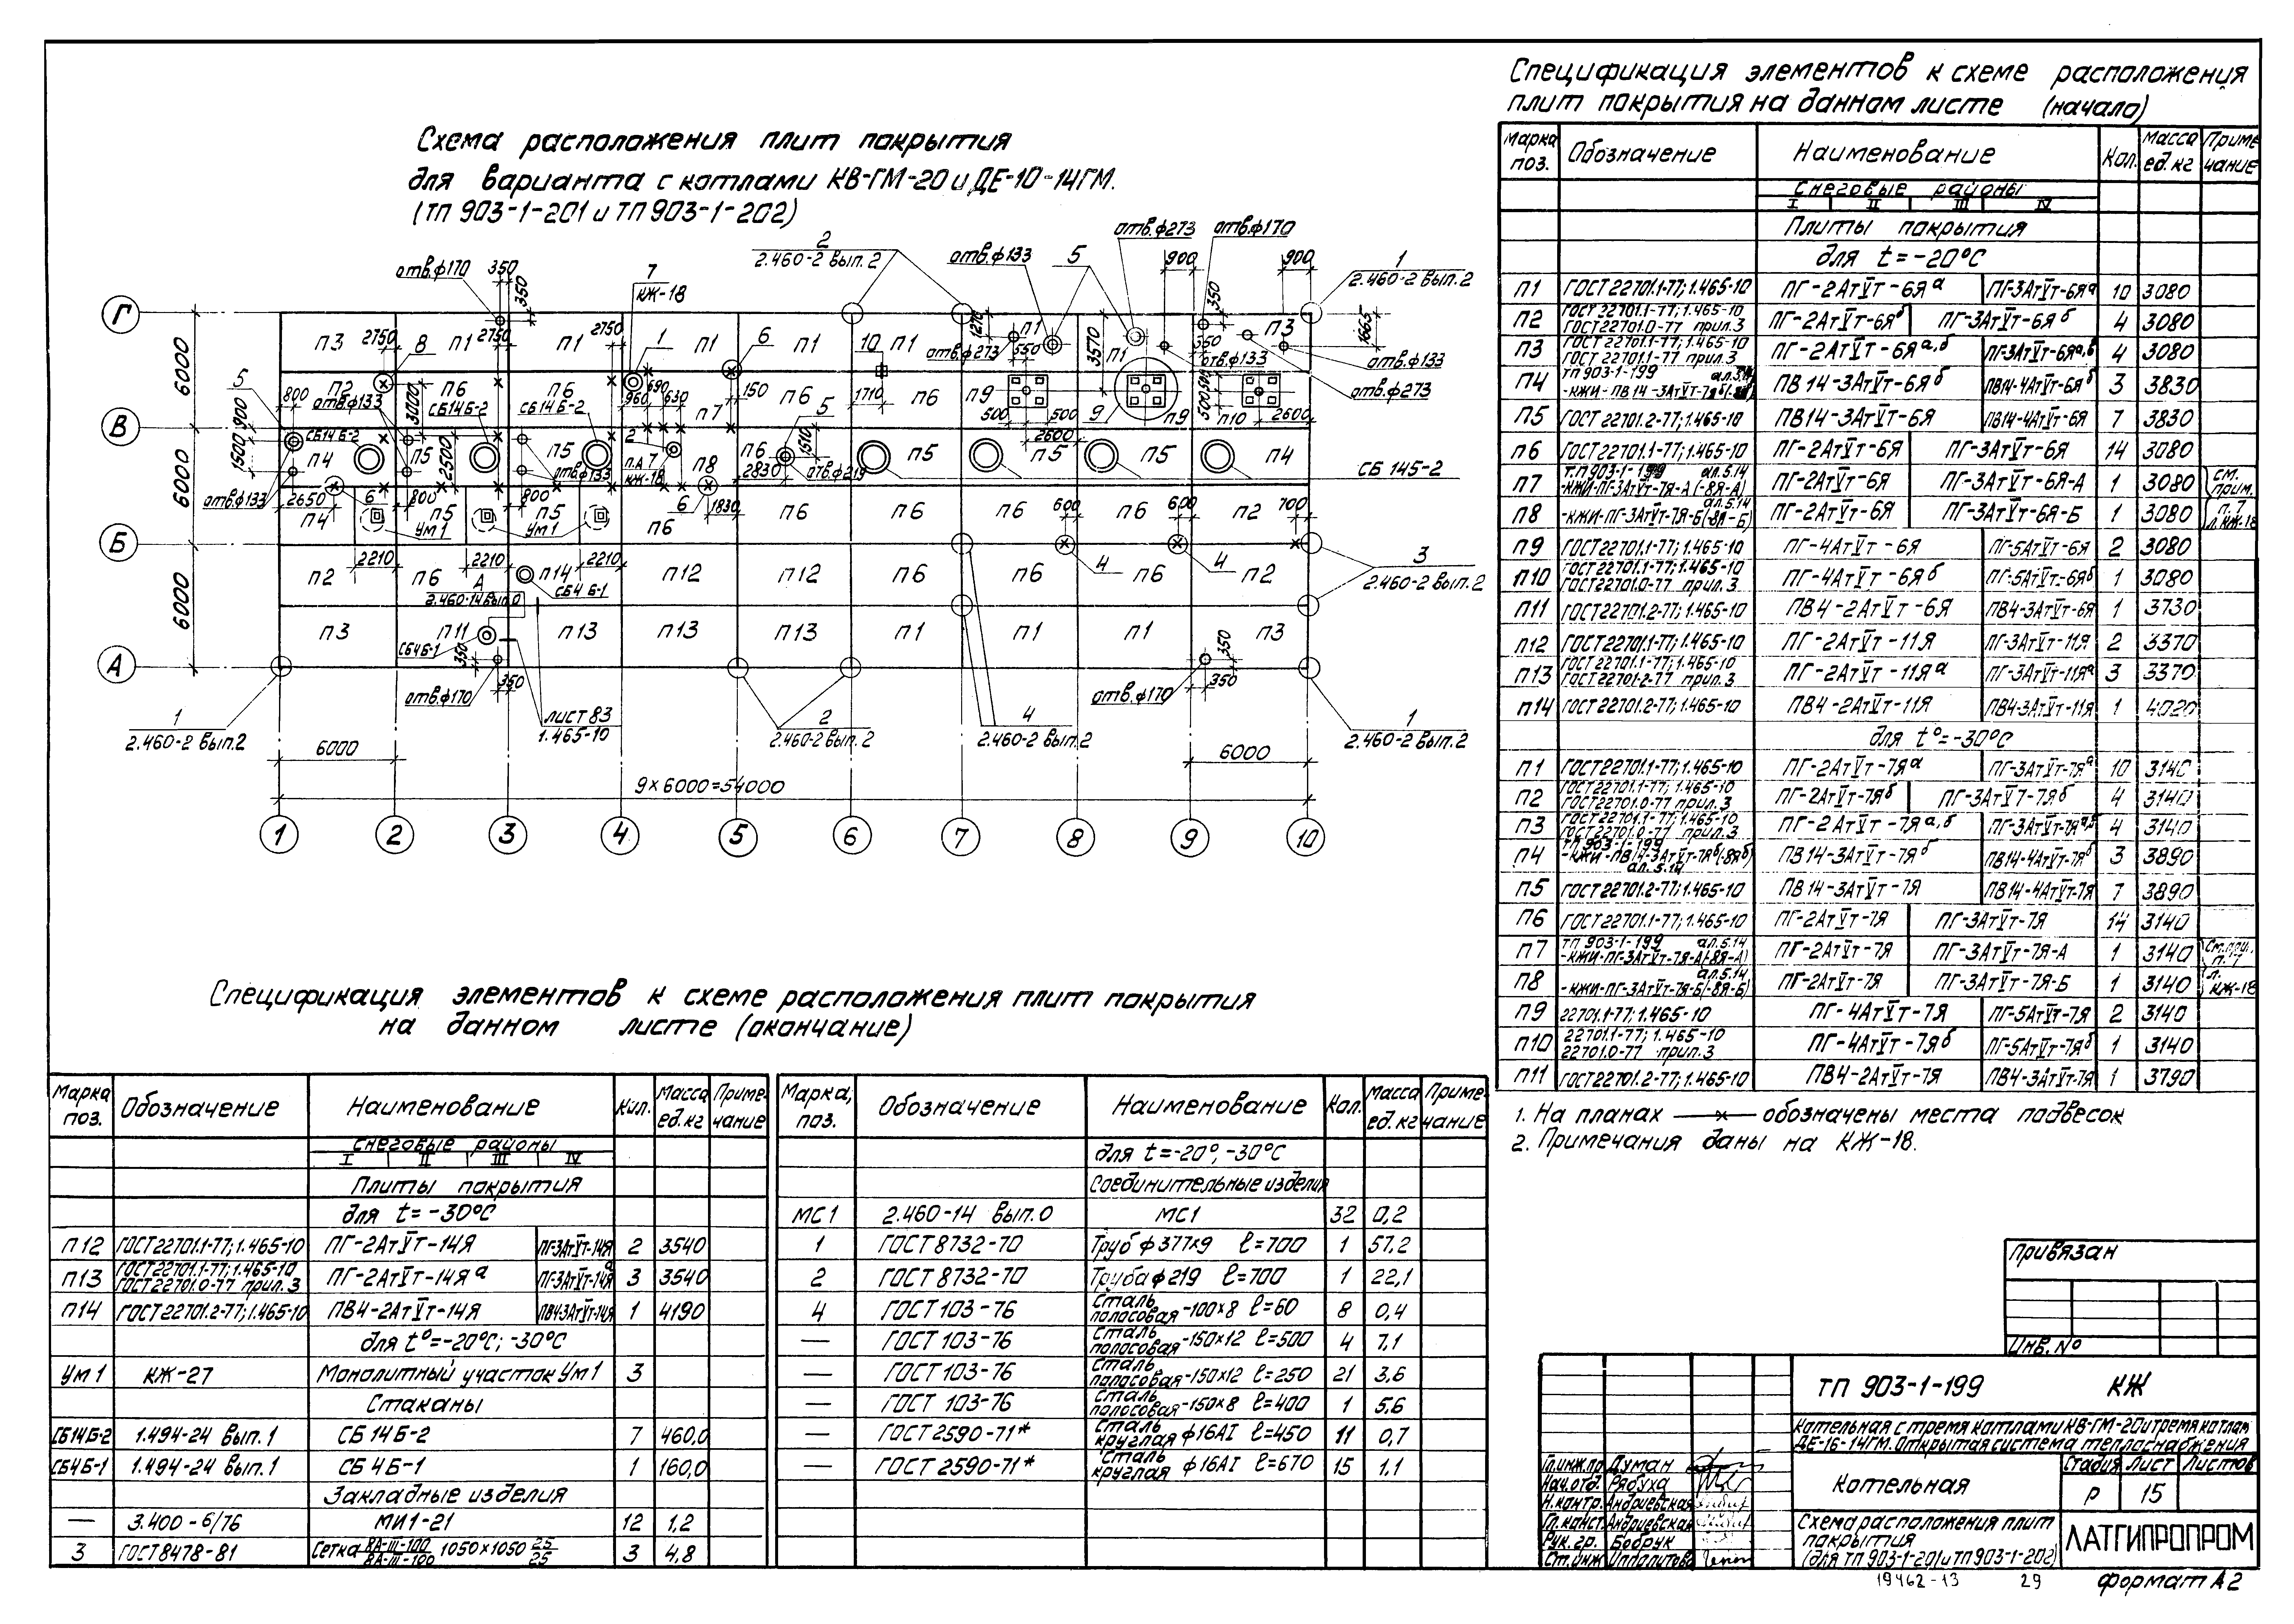 Схема расположения плит покрытия
для варианта с котлами КВ-ГМ-20 и ДЕ-10-14ГМ.
(ТП 903-1-201 и ТП 903-1-202)
отв.ф170 350 350
7
КЖ-18
2
2.460-2 Вып.2
отв.ф133
5
отв.ф273
отв.ф170
900
900
1
2.460-2 Вып.2
Г
В
Б
А
6000
6000
6000
П3 2750 8 П1 2750 П1 2750 1 П1 6 П1 10 П1 П1 П1 П3
5 800 П2 П6 П6 П7 П6 П6 П9 П9 П10
отв.ф133 3000 СБ14Б-2 СБ14Б-2 960 690 630 150 1710 500 500 2600 2600
1270 3570 350 1665 550
отв.ф273
отв.ф133
отв.ф133
отв.ф273
900 1500
СБ14Б-2
П4 П5 П5 П8 П6 П5 П5 П5 П4
2500 2830 1510 отв.ф219
СБ 145-2
отв.ф133 2650 6 800 800 отв.ф133 6 1830 600 600 700
П4 П5 П5 П6 П6 П6 П6 П6 П2
Ум1 Ум1
2210 2210 2210
П2 П6 П14 П12 П12 П6 П6 П6 П2
А
2.460-14 Вып.0
СБ4Б-1
4 4
3
2.460-2 Вып.2
П3 П11 П13 П13 П13 П1 П1 П1 П3
СБ4Б-1 350
отв.ф170 350
отв.ф170 350 350
1
2.460-2 Вып.2
ЛИСТ 83
1.465-10
2
2.460-2 Вып.2
4
2.460-2 Вып.2
1
2.460-2 Вып.2
6000
6000
9×6000=54000
1 2 3 4 5 6 7 8 9 10
Спецификация элементов к схеме расположения
плит покрытия на данном листе (начало)
Марка поз. Обозначение Наименование Кол. Масса ед.кг Примечание
Снеговые районы
I II III IV
Плиты покрытия
для t=-20°С
П1 ГОСТ 22701.1-77; 1.465-10 ПГ-2АтVт-6Яа ПГ-3АтVт-6Яа 10 3080
П2 ГОСТ 22701.1-77; 1.465-10 ГОСТ 22701.0-77 прил.3 ПГ-2АтVт-6Яб ПГ-3АтVт-6Яб 4 3080
П3 ГОСТ 22701.1-77; 1.465-10 ГОСТ 22701.1-77 прил.3 ПГ-2АтVт-6Яа,б ПГ-3АтVт-6Яа,б 4 3080
П4 ТП 903-1-199 ПВ14-3АтVт-6Яб ПВ14-4АтVт-6Яб 3 3830
П5 ГОСТ 22701.2-77; 1.465-10 ПВ14-3АтVт-6Я ПВ14-4АтVт-6Я 7 3830
П6 ГОСТ 22701.1-77; 1.465-10 ПГ-2АтVт-6Я ПГ-3АтVт-6Я 14 3080
П7 Т.П 903-1-199 ал.5.14 -КЖИ-ПГ-3АтVт-7Я-А(-8Я-А) ПГ-2АтVт-6Я ПГ-3АтVт-6Я-А 1 3080 см. прим.
П8 ал.5.14 -КЖИ-ПГ-3АтVт-7Я-Б(-8Я-Б) ПГ-2АтVт-6Я ПГ-3АтVт-6Я-Б 1 3080 п.7 л.КЖ-18
П9 ГОСТ 22701.1-77; 1.465-10 ПГ-4АтVт-6Я ПГ-5АтVт-6Я 2 3080
П10 ГОСТ 22701.1-77; 1.465-10 ГОСТ 22701.0-77 прил.3 ПГ-4АтVт-6Яб ПГ-5АтVт-6Яб 1 3080
П11 ГОСТ 22701.2-77; 1.465-10 ПВ4-2АтVт-6Я ПВ4-3АтVт-6Я 1 3730
П12 ГОСТ 22701.1-77; 1.465-10 ПГ-2АтVт-11Я ПГ-3АтVт-11Я 2 3370
П13 ГОСТ 22701.1-77; 1.465-10 ГОСТ 22701.2-77 прил.3 ПГ-2АтVт-11Яа ПГ-3АтVт-11Яа 3 3370
П14 ГОСТ 22701.2-77; 1.465-10 ПВ4-2АтVт-11Я ПВ4-3АтVт-11Я 1 4020
для t°=-30°С
П1 ГОСТ 22701.1-77; 1.465-10 ПГ-2АтVт-7Яа ПГ-3АтVт-7Яа 10 3140
П2 ГОСТ 22701.1-77; 1.465-10 ГОСТ 22701.0-77 прил.3 ПГ-2АтVт-7Яб ПГ-3АтVт-7Яб 4 3140
П3 ГОСТ 22701.1-77; 1.465-10 ГОСТ 22701.0-77 прил.3 ПГ-2АтVт-7Яа,б ПГ-3АтVт-7Яа,б 4 3140
П4 ТП 903-1-199 -КЖИ-ПВ14-3АтVт-7Яб(-8Яб) ал.5.14 ПВ14-3АтVт-7Яб ПВ14-4АтVт-7Яб 3 3890
П5 ГОСТ 22701.2-77; 1.465-10 ПВ14-3АтVт-7Я ПВ14-4АтVт-7Я 7 3890
П6 ГОСТ 22701.1-77; 1.465-10 ПГ-2АтVт-7Я ПГ-3АтVт-7Я 14 3140
П7 ТП 903-1-199 ал.5.14 -КЖИ-ПГ-3АтVт-7Я-А(-8Я-А) ПГ-2АтVт-7Я ПГ-3АтVт-7Я-А 1 3140 См.прим. п.7
П8 ал.5.14 -КЖИ-ПГ-3АтVт-7Я-Б(-8Я-Б) ПГ-2АтVт-7Я ПГ-3АтVт-7Я-Б 1 3140 л. КЖ-18
П9 22701.1-77; 1.465-10 ПГ-4АтVт-7Я ПГ-5АтVт-7Я 2 3140
П10 22701.1-77; 1.465-10 22701.0-77 прил.3 ПГ-4АтVт-7Яб ПГ-5АтVт-7Яб 1 3140
П11 ГОСТ 22701.2-77; 1.465-10 ПВ4-2АтVт-7Я ПВ4-3АтVт-7Я 1 3790
1. На планах —×— обозначены места подвесок
2. Примечания даны на КЖ-18.
Спецификация элементов к схеме расположения плит покрытия
на данном листе (окончание)
Марка поз. Обозначение Наименование Кол. Масса ед.кг Примечание
Снеговые районы
I II III IV
Плиты покрытия
для t=-30°С
П12 ГОСТ 22701.1-77; 1.465-10 ПГ-2АтVт-14Я ПГ-3АтVт-14Я 2 3540
П13 ГОСТ 22701.1-77; 1.465-10 ГОСТ 22701.0-77 прил.3 ПГ-2АтVт-14Яа ПГ-3АтVт-14Яа 3 3540
П14 ГОСТ 22701.2-77; 1.465-10 ПВ4-2АтVт-14Я ПВ4-3АтVт-14Я 1 4190
для t°=-20°С; -30°С
Ум1 КЖ-27 Монолитный участок Ум1 3
Стаканы
СБ14Б-2 1.494-24 Вып.1 СБ 14Б-2 7 460,0
СБ4Б-1 1.494-24 Вып.1 СБ 4Б-1 1 160,0
Закладные изделия
— 3.400-6/76 МИ1-21 12 1,2
3 ГОСТ 8478-81 Сетка 8А-III-100/8А-III-100 1050×1050 25/25 3 4,8
Марка, поз. Обозначение Наименование Кол. Масса ед.кг Примечание
для t=-20°, -30°С
Соединительные изделия
МС1 2.460-14 Вып.0 МС1 32 0,2
1 ГОСТ 8732-70 Труб ф377×9 ℓ=700 1 57,2
2 ГОСТ 8732-70 Труба ф219 ℓ=700 1 22,1
4 ГОСТ 103-76 Сталь полосовая -100×8 ℓ=60 8 0,4
— ГОСТ 103-76 Сталь полосовая -150×12 ℓ=500 4 7,1
— ГОСТ 103-76 Сталь полосовая -150×12 ℓ=250 21 3,6
— ГОСТ 103-76 Сталь полосовая -150×8 ℓ=400 1 5,6
— ГОСТ 2590-71* Сталь круглая ф16АI ℓ=450 11 0,7
— ГОСТ 2590-71* Сталь круглая ф16АI ℓ=670 15 1,1
Привязан
Инв.№
ТП 903-1-199 КЖ
Котельная с тремя котлами КВ-ГМ-20 и тремя котлам
ДЕ-16-14ГМ. Открытая система теплоснабжения
Гл.инж.пр Думан
Нач.отд. Рябуха
Н.контр. Андриевская
Гл.конст. Андриевская
Рук.гр. Бобрук
Ст.инж Ипполитова
Котельная
Стадия Лист Листов
Р 15
Схема расположения плит
покрытия
(для ТП 903-1-201 и ТП 903-1-202)
ЛАТГИПРОПРОМ
19462-13 29 формат А2